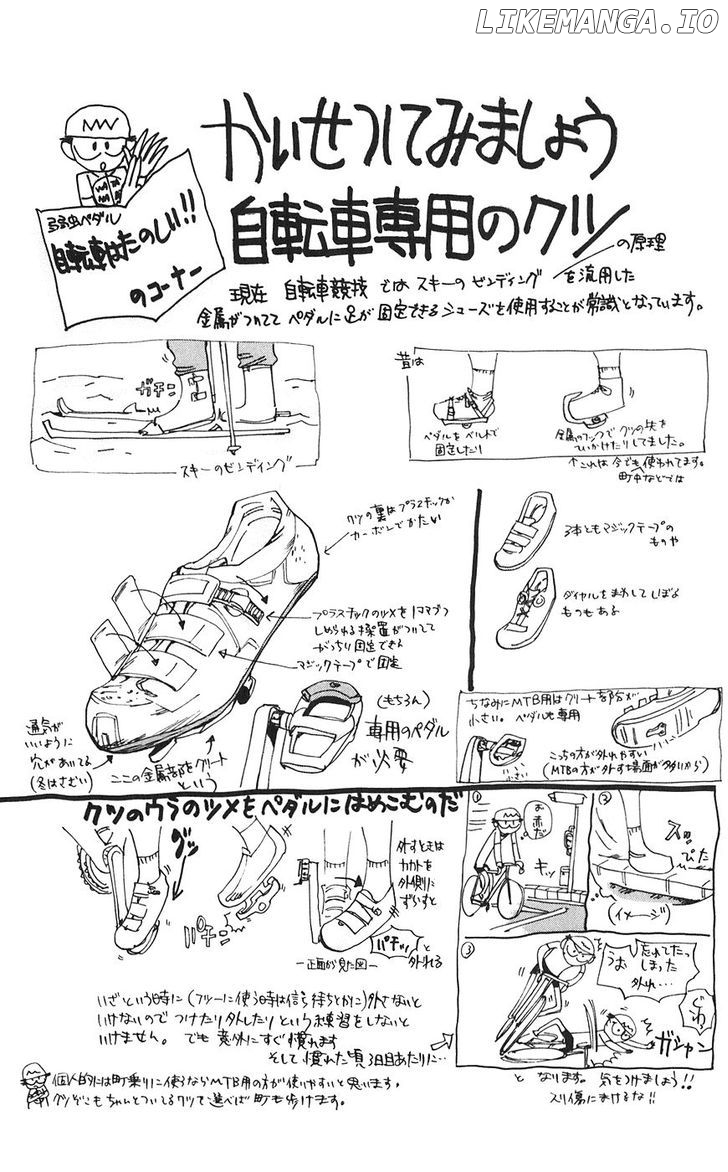 LIKEMANGA.IO
かいせつしてみましょう
自転車専用のクツ
の原理
弱虫ペダル
自転車はたのしい!!
のコーナー
現在 自転車競技では スキーの ビンディング を流用した
金属がついてて ペダルに足が固定できるシューズを使用することが常識となっています。
ガチン
スキーのビンディング
昔は
ペダルをベルトで
固定したり
金属のフックで クツの先を
ひっかけたりしてました。
↑これは今でも使われてます。
町中などでは
クツの裏はプラスチックか
カーボンでかたい
プラスチックのツメを1コマづつ
しめられる装置がついてて
がっちり固定できる
マジックテープで固定
通気が
いいように
穴があいてる
(冬はさむい)
ここの金属部をクリート
という
(もちろん)
専用のペダル
が必要
3本ともマジックテープの
ものや
ダイヤルをまわして しぼる
ものもある
ちなみにMTB用はクリート部分が
小さい。ペダルも専用
小さい
こっちの方が外れやすい
(MTBの方が外す場面が多いから)
クツのウラのツメをペダルにはめこむのだ
グッ
パチン
外すときは
カカトを
外側に
ずいすと
パチッ と
外れる
ー正面から見た図ー
いざという時に(フツーに使う時は信号待ちとかに)外さないと
いけないので つけたり外したり という練習をしないと
いけません。でも 意外にすぐ慣れます
そして慣れた頃 3日目あたりに…
①
お
赤だ
キッ
②
スッ
ぴた
(イメージ)
③
うお
忘れてたっ
しまった
外れ…
ガシャン
と なります。気をつけましょう!!
スリ傷にまけるな!!
個人的には町乗りに使うならMTB用の方が使いやすいと思います。
クツぞこもちゃんとついてるクツで選べば町も歩けます。